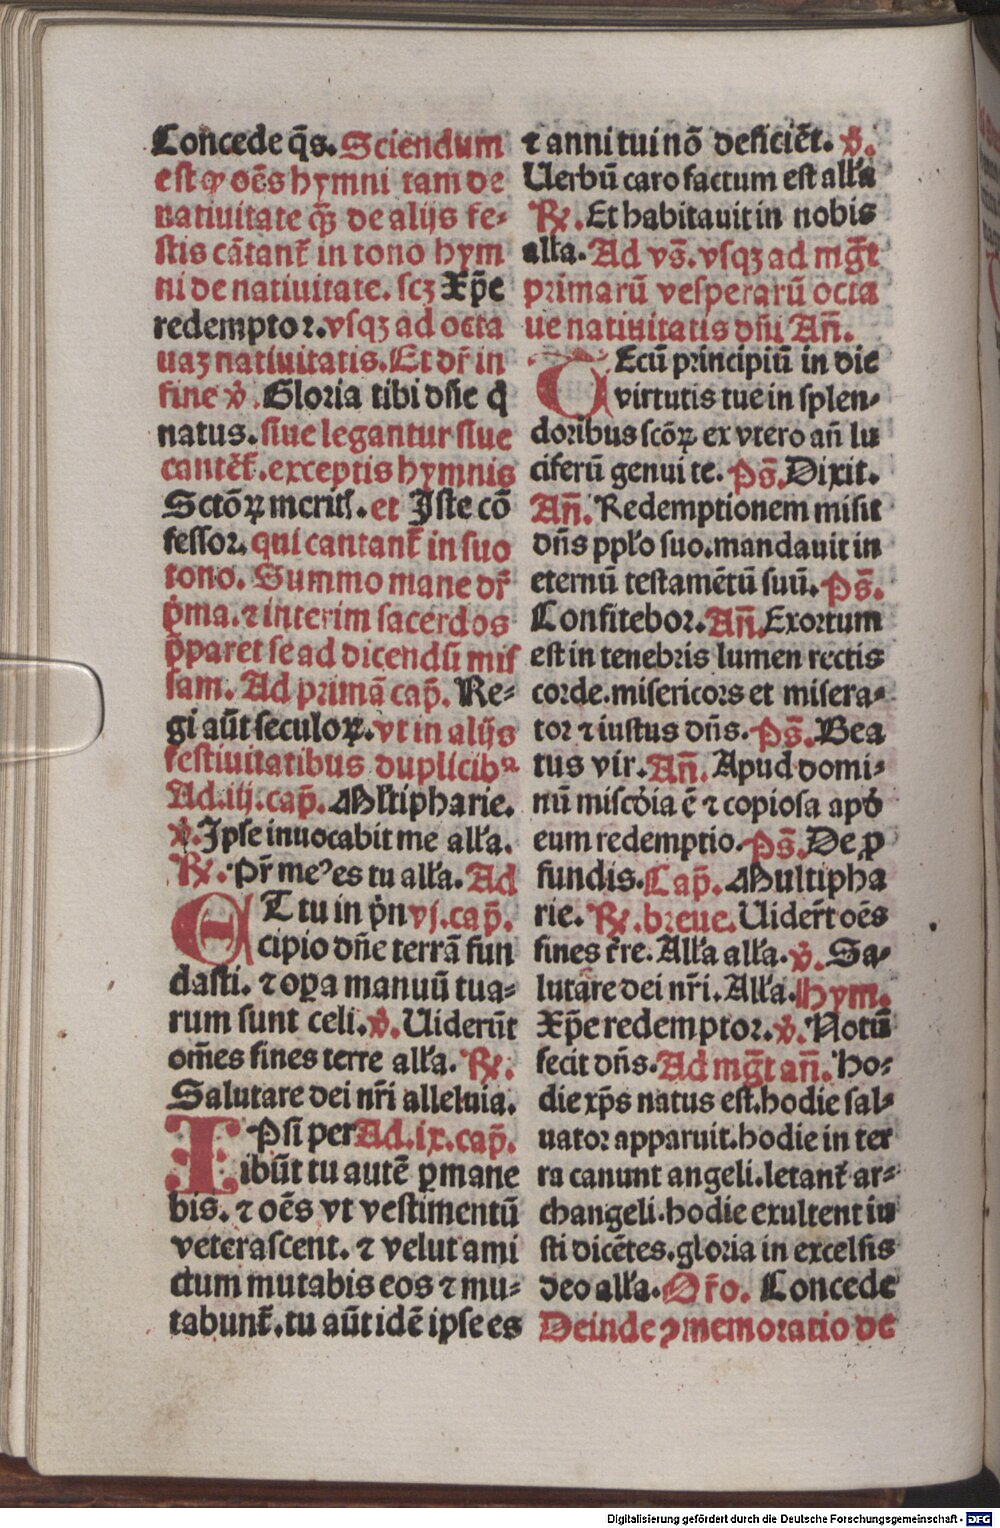 Concede q̄s. Sciendum
est ꝙ oēs hymni tam de
natiuitate q̄ꝫ de alijs fe-
stis cātant᷑ in tono hym
ni de natiuitate. scꝫ Xp̄e
redemptor. vsqꝫ ad octa
uaꝫ natiuitatis. Et dr̄ in
fine v̄. Gloria tibi dn̄e q̄
natus. siue legantur siue
cantēt᷑. exceptis hymnis
Sctōꝝ meritꝭ. et Iste cō
fessor. qui cantant᷑ in suo
tono. Summo mane dr̄
p̄ma. ⁊ interim sacerdos
p̄paret se ad dicendū mis
sam. Ad primā cap̄. Re-
gi aūt seculoꝝ. vt in alijs
festiuitatibus duplicibꝰ
Ad .iij. cap̄. Mltipharie.
v̄. Ipse inuocabit me alľa.
℟. Pr̄ meꝰ es tu alľa. Ad
ET tu in p̄n vj. cap̄.
cipio dn̄e terrā fun
dasti. ⁊ oꝑa manuū tua-
rum sunt celi. v̄. Uiderūt
om̄es fines terre alľa. ℟.
Salutare dei nr̄i alleluia.
IPsi per Ad .ix. cap̄.
ibūt tu autē ꝑmane
bis. ⁊ oēs vt vestimentū
veterascent. ⁊ velut ami
ctum mutabis eos ⁊ mu-
tabunt᷑. tu aūt idē ipse es
⁊ anni tui nō deficiēt. v̄.
Uerbū caro factum est alľa
℟. Et habitauit in nobis
alľa. Ad vs̄. vsqꝫ ad mḡt
primarū vesperarū octa
ue natiuitatis dn̄i Añ.
TEcū principiū in die
virtutis tue in splen-
doribus scōꝝ ex vtero añ lu
ciferū genui te. Ps̄. Dixit.
Añ. Redemptionem misit
dn̄s ppľo suo. mandauit in
eternū testamētū suū. Ps̄.
Confitebor. Añ. Exortum
est in tenebris lumen rectis
corde. misericors et misera-
tor ⁊ iustus dn̄s. Ps̄. Bea
tus vir. Añ. Apud domi-
nū miscďia ē ⁊ copiosa apď
eum redemptio. Ps̄. De ꝓ
fundis. Cap̄. Multipha
rie. ℟. breue. Uider̄t oēs
fines t̄re. Alľa alľa. v̄. Sa-
lutare dei nr̄i. Alľa. Hym.
Xp̄e redemptor. v̄. Notū
fecit dn̄s. Ad mḡt añ. Ho-
die xp̄s natus est. hodie sal-
uator apparuit. hodie in ter
ra canunt angeli. letant᷑ ar-
changeli. hodie exultent iu
sti dicētes. gloria in excelsis
deo alľa. Or̄o. Concede
Deinde ꝯmemoratio de
Digitalisierung gefördert durch die Deutsche Forschungsgemeinschaft - DFG